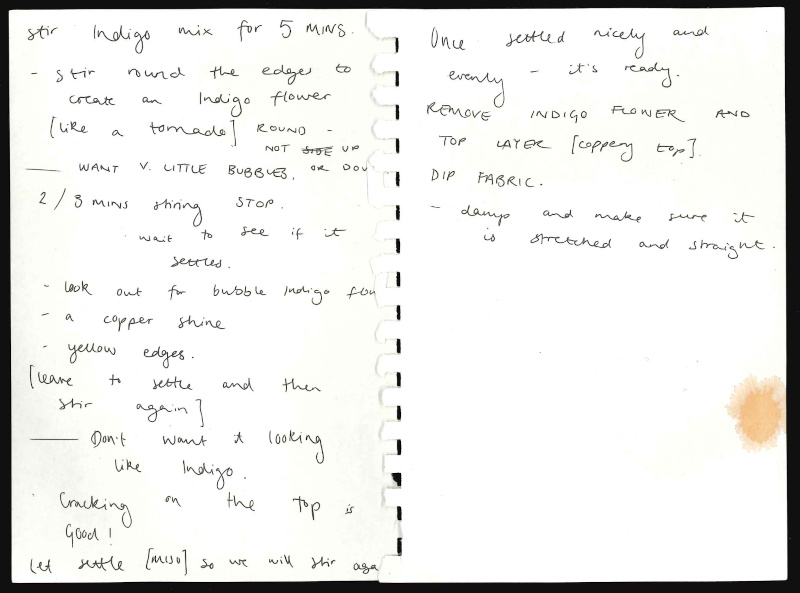 stir Indigo mix for 5 MINS.
- stir round the edges to
create an Indigo flower
[like a tornado] ROUND -
NOT SIDE UP
WANT V. LITTLE BUBBLES. OR DOW
2/3 MINS stiring STOP.
wait to see if it
settles.
- look out for bubble Indigo flow
- a copper shine
- yellow edges.
[leave to settle and then
stir again]
Don't want it looking
like Indigo.
Cracking on the top is
Good!
Let settle [MISO] so we will stir aga
Once settled nicely and
evenly - it's ready.
REMOVE INDIGO FLOWER AND
TOP LAYER [coppery top].
DIP FABRIC.
- damp and make sure it
is stretched and straight.